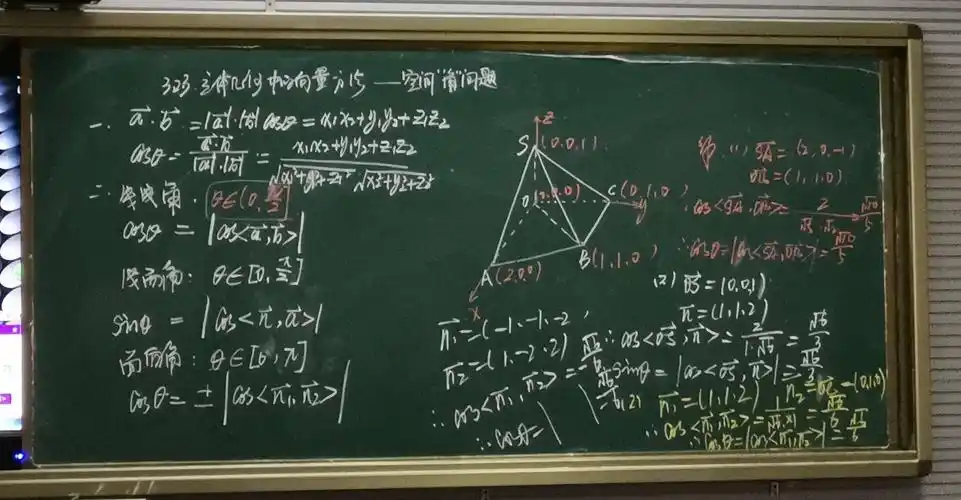 3.2.3.立体几何中的向量方法——空间"角"问题
一. a⃗·b⃗ =|a⃗|·|b⃗|cosθ = x₁x₂+y₁y₂+z₁z₂
cosθ = a⃗·b⃗/|a⃗|·|b⃗| = x₁x₂+y₁y₂+z₁z₂/√x₁²+y₁²+z₁² √x₂²+y₂²+z₂²
二. 线线角. θ∈(0, π/2]
cosθ = |cos<a⃗,b⃗>|
线面角: θ∈[0, π/2]
sinθ = |cos<n⃗,a⃗>|
面面角: θ∈[0, π]
cosθ = ± |cos<n₁⃗,n₂⃗>|
z
S (0,0,1)
O (0,0,0)
C (0,1,0)
y
B (1,1,0)
A (2,0,0)
x
n₁⃗=(-1,-1,-2
n₂⃗=(1,-2,2)
∴ cos<n₁⃗,n₂⃗>=
∴ cosθ=| |
解.(1) SA⃗ = (2,0,-1)
OB⃗ = (1,1,0)
∴cos<SA⃗,OB⃗>= 2/√5·√2 = √10/5
∴cosθ=|cos<SA⃗,OB⃗>|=√10/5
(2) OS⃗ = (0,0,1)
n⃗ = (1,1,2)
∴cos<OS⃗,n⃗>= 2/1·√6 = √6/3
sinθ = |cos<OS⃗,n⃗>|= √6/3
n₁⃗=(1,1,2) n₂⃗=OC⃗=(0,1,0)
∴ cos<n₁⃗,n₂⃗>= 1/√6×1 = √6/6
∴cosθ=|cos<n₁⃗,n₂⃗>|= √6/6